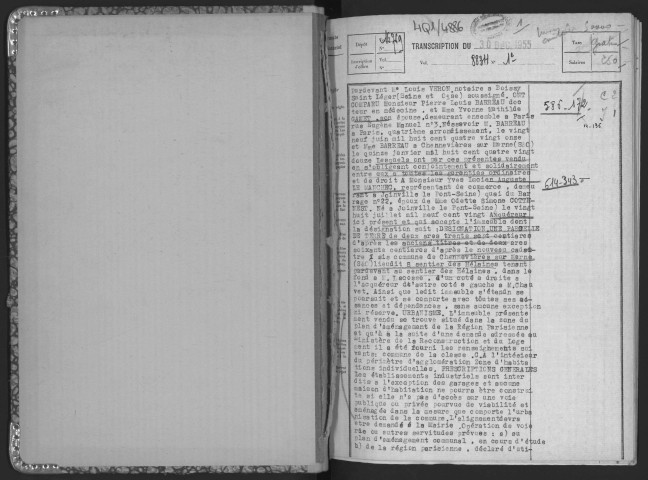 4Q1/4886
Dépôt
TRANSCRIPTION DU 30 DEC 1955
Vol.
8834 - 1°
Taxe
Salaires
Pardevant Me Louis VERON, notaire à Boissy
Saint Léger (Seine et Oise) soussigné. ONT
COMPARU Monsieur Pierre Louis BARREAU doc
teur en médecine, et Mme Yvonne Mathilde
son épouse, demeurant ensemble à Paris
rue Eugène Manuel n°3, Savoir M. BARREAU
à Paris, quatrième arrondissement, le vingt
neuf juin mil huit cent quatre vingt onze
et Mme BARREAU à Chennevières sur Marne (S&O)
le quinze janvier mil huit cent quatre vingt
douze Lesquels ont par ces présentes vendu
en s'obligeant conjointement et solidairement
entre eux à toutes les garanties ordinaires
et de droit à Monsieur Yves Lucien Auguste
LE représentant de commerce, demeu
rant à Joinville le Pont (Seine) quai du Bar
rage n°22, époux de Mme Odette Simone
Né à Joinville le Pont (Seine) le vingt
huit juillet mil neuf cent vingt Acquéreur
ici présent et qui accepte l'immeuble dont
la désignation suit: DESIGNATION. UNE PARCELLE
DE TERRE de deux ares trente sept centiares
d'après les anciens titres et de deux ares
soixante centiares d'après le nouveau cadas
tre sis commune de Chennevières sur Marne
(S&O) lieudit sentier des Mélaines tenant
pardevant au sentier des Mélaines, dans le
fond à M. d'un coté à droite à
l'acquéreur d'autre coté à gauche à M. Chau
vet. Ainsi que ledit immeuble s'étend se
poursuit et se comporte avec toutes ses ai-
sances et dépendances, sans aucune exception
ni réserve. URBANISME. L'immeuble présente
ment vendu se trouve situé dans la zone du
plan d'aménagement de la Région Parisienne
et qu'à la suite d'une demande adressée au
Ministère de la Reconstruction et du Loge
ment il a été fourni les renseignements sui
vants: commune de la classe .C.A l'intérieur
du périmètre d'agglomération Zone d'habita
tions individuelles. PRESCRIPTIONS GENERALES
Les établissements industriels sont inter
dits à l'exception des garages et aucune
maison d'habitation ne pourra être construi
te si elle n'a pas d'accès sur une voie
publique ou privée pourvue de viabilité et
aménagée dans la mesure que comporte l'urba
nisation de la commune, l'alignement devra
être demandé à la Mairie. Opération de voie
rie ou autres servitudes prévues: a) au
plan d'aménagement communal, en cours d'étude
b) de la région parisienne, déclaré d'uti-
585-172
614-343